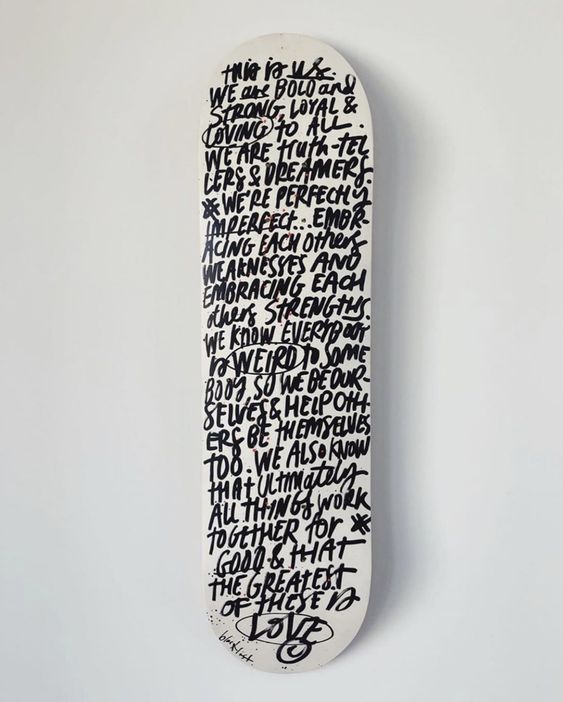 this is us.
WE are BOLD and
STRONG, LOYAL &
LOVING to ALL.
WE ARE truth-tel
lers & DREAMERS.
* WE'RE PERFECtly
IMPERFECT... EMBR-
ACING EACH others
WEAKNESSES AND
EMBRACING EACH
others STRENGTHS.
WE KNOW EVERYBODY
is WEIRD to SOME
BODY, SO WE BE OUR-
SELVES & HELP OTH-
ERS BE THEMSELVES
TOO. WE ALSO KNOW
that ultimately
ALL THINGS WORK
TOGETHER for *
GOOD & tHAT
THE GREATEST
OF THESE is
LOVE
©